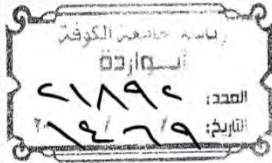 رئاسة جامعة الكوفة
الــواردة
العدد: ٢١٨٩٢
التاريخ: ٩ / ٦ / ١٤